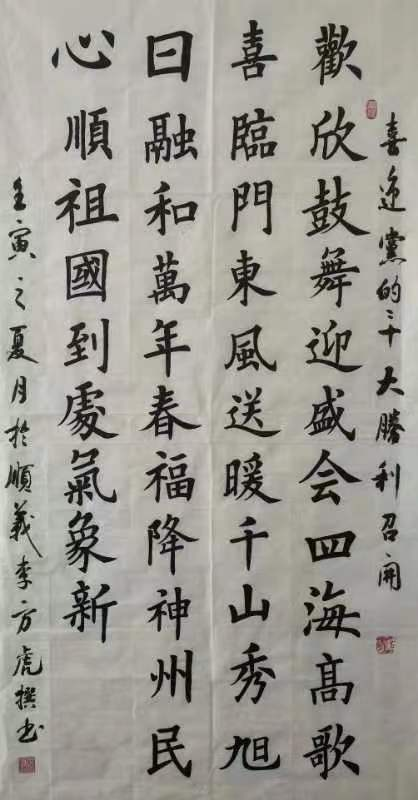 喜迎黨的二十大勝利召開
歡欣鼓舞迎盛会四海高歌
喜臨門東風送暖千山秀旭
日融和萬年春福降神州民
心順祖國到處氣象新
壬寅之夏月於順義李方虎撰书